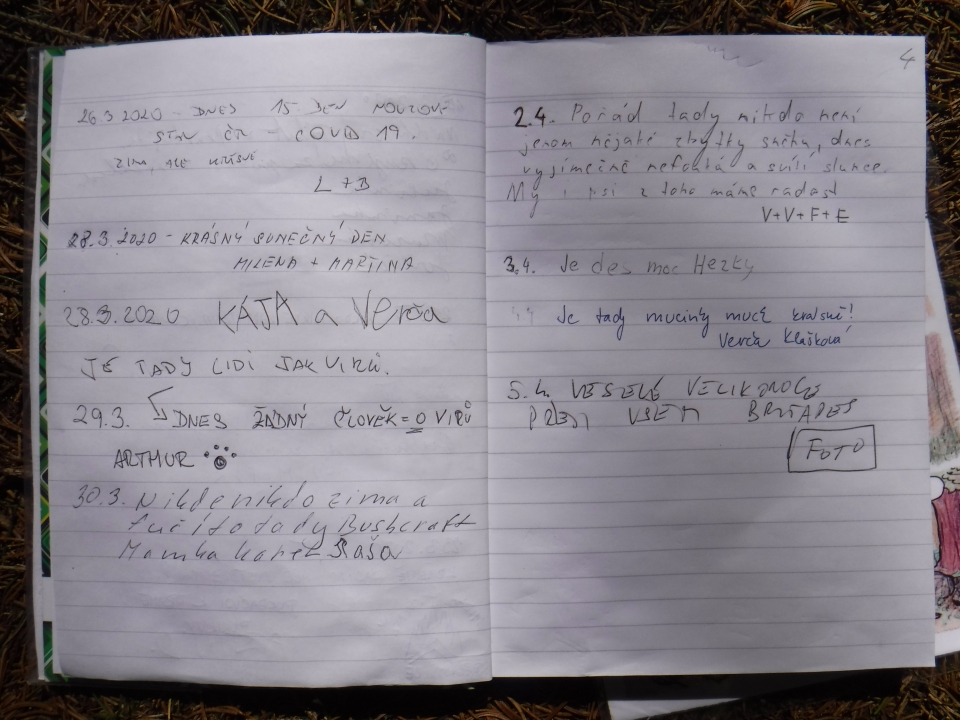 26.3 2020 - DNES 15 DEN NOUZOVÉ
STAV ČR - COVID 19.
ZIMA, ALE KRÁSNĚ
L + B
28.3. 2020 - KRÁSNÝ SUNEČNÝ DEN
MILENA + MARTINA
28.3.2020 KÁJA a Verča
JE TADY LIDÍ JAK VIRŮ.
29.3. DNES ŽÁDNÝ ČLOVĚK = 0 VIRŮ
ARTHUR
30.3. Nikde nikdo zima a
fučí to tady Bushcraft
Mamka Saša
4
2.4. Pořád tady nikdo není
jenom nějaké zbytky sněhu, dnes
vyjímečně nefouká a svítí slunce.
My i psi z toho máme radost
V+V+F+E
3.4. Je des moc Hezky
Je tady muciny krasně!
Verča
5.4. VESELÉ VELIKONOCE
PŘEJI VŠEM
FOTO